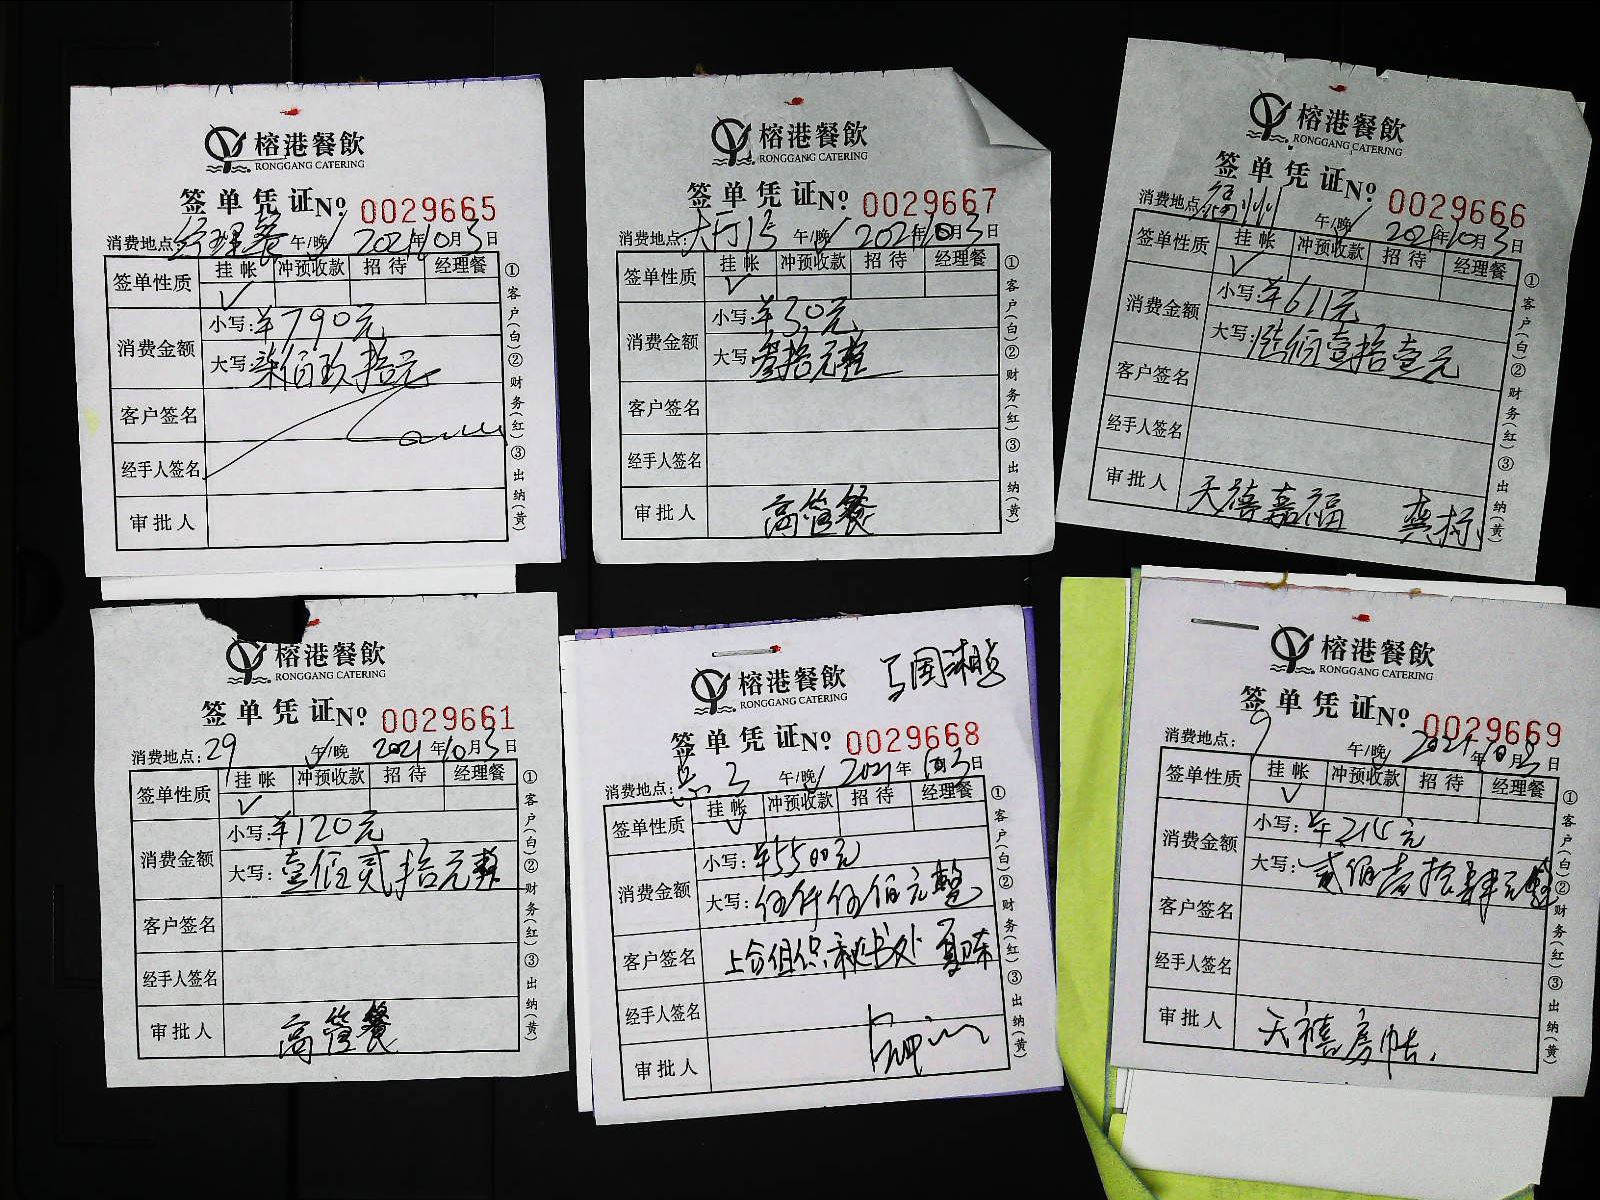 榕港餐飲
RONGGANG CATERING
签单凭证 № 0029665
消费地点:经理餐 午/晚✓ 2021年10月3日
签单性质 挂帐 冲预收款 招待 经理餐
✓
消费金额 小写:¥790元
大写:柒佰玖拾元
客户签名
经手人签名
审批人
①客户(白)②财务(红)③出纳(黄)
榕港餐飲
RONGGANG CATERING
签单凭证 № 0029667
消费地点:大厅15 午/晚✓ 2021年10月3日
签单性质 挂帐 冲预收款 招待 经理餐
✓
消费金额 小写:¥30元
大写:叁拾元整
客户签名
经手人签名
审批人 高管餐
①客户(白)②财务(红)③出纳(黄)
榕港餐飲
RONGGANG CATERING
签单凭证 № 0029666
消费地点:福州 午/晚✓ 2021年10月3日
签单性质 挂帐 冲预收款 招待 经理餐
✓
消费金额 小写:¥611元
大写:陆佰壹拾壹元
客户签名
经手人签名
审批人 天禧嘉福
①客户(白)②财务(红)③出纳(黄)
榕港餐飲
RONGGANG CATERING
签单凭证 № 0029661
消费地点:29 午✓/晚 2021年10月3日
签单性质 挂帐 冲预收款 招待 经理餐
✓
消费金额 小写:¥120元
大写:壹佰贰拾元整
客户签名
经手人签名
审批人 高管餐
①客户(白)②财务(红)③出纳(黄)
榕港餐飲
RONGGANG CATERING
签单凭证 № 0029668
消费地点: 午/晚✓ 2021年10月3日
签单性质 挂帐 冲预收款 招待 经理餐
✓
消费金额 小写:¥5500元
大写:伍仟伍佰元整
客户签名 上合组织秘书处
经手人签名
审批人
①客户(白)②财务(红)③出纳(黄)
榕港餐飲
RONGGANG CATERING
签单凭证 № 0029669
消费地点:9 午/晚✓ 2021年10月3日
签单性质 挂帐 冲预收款 招待 经理餐
✓
消费金额 小写:¥214元
大写:贰佰壹拾肆元整
客户签名
经手人签名
审批人 天禧房帐.
①客户(白)②财务(红)③出纳(黄)